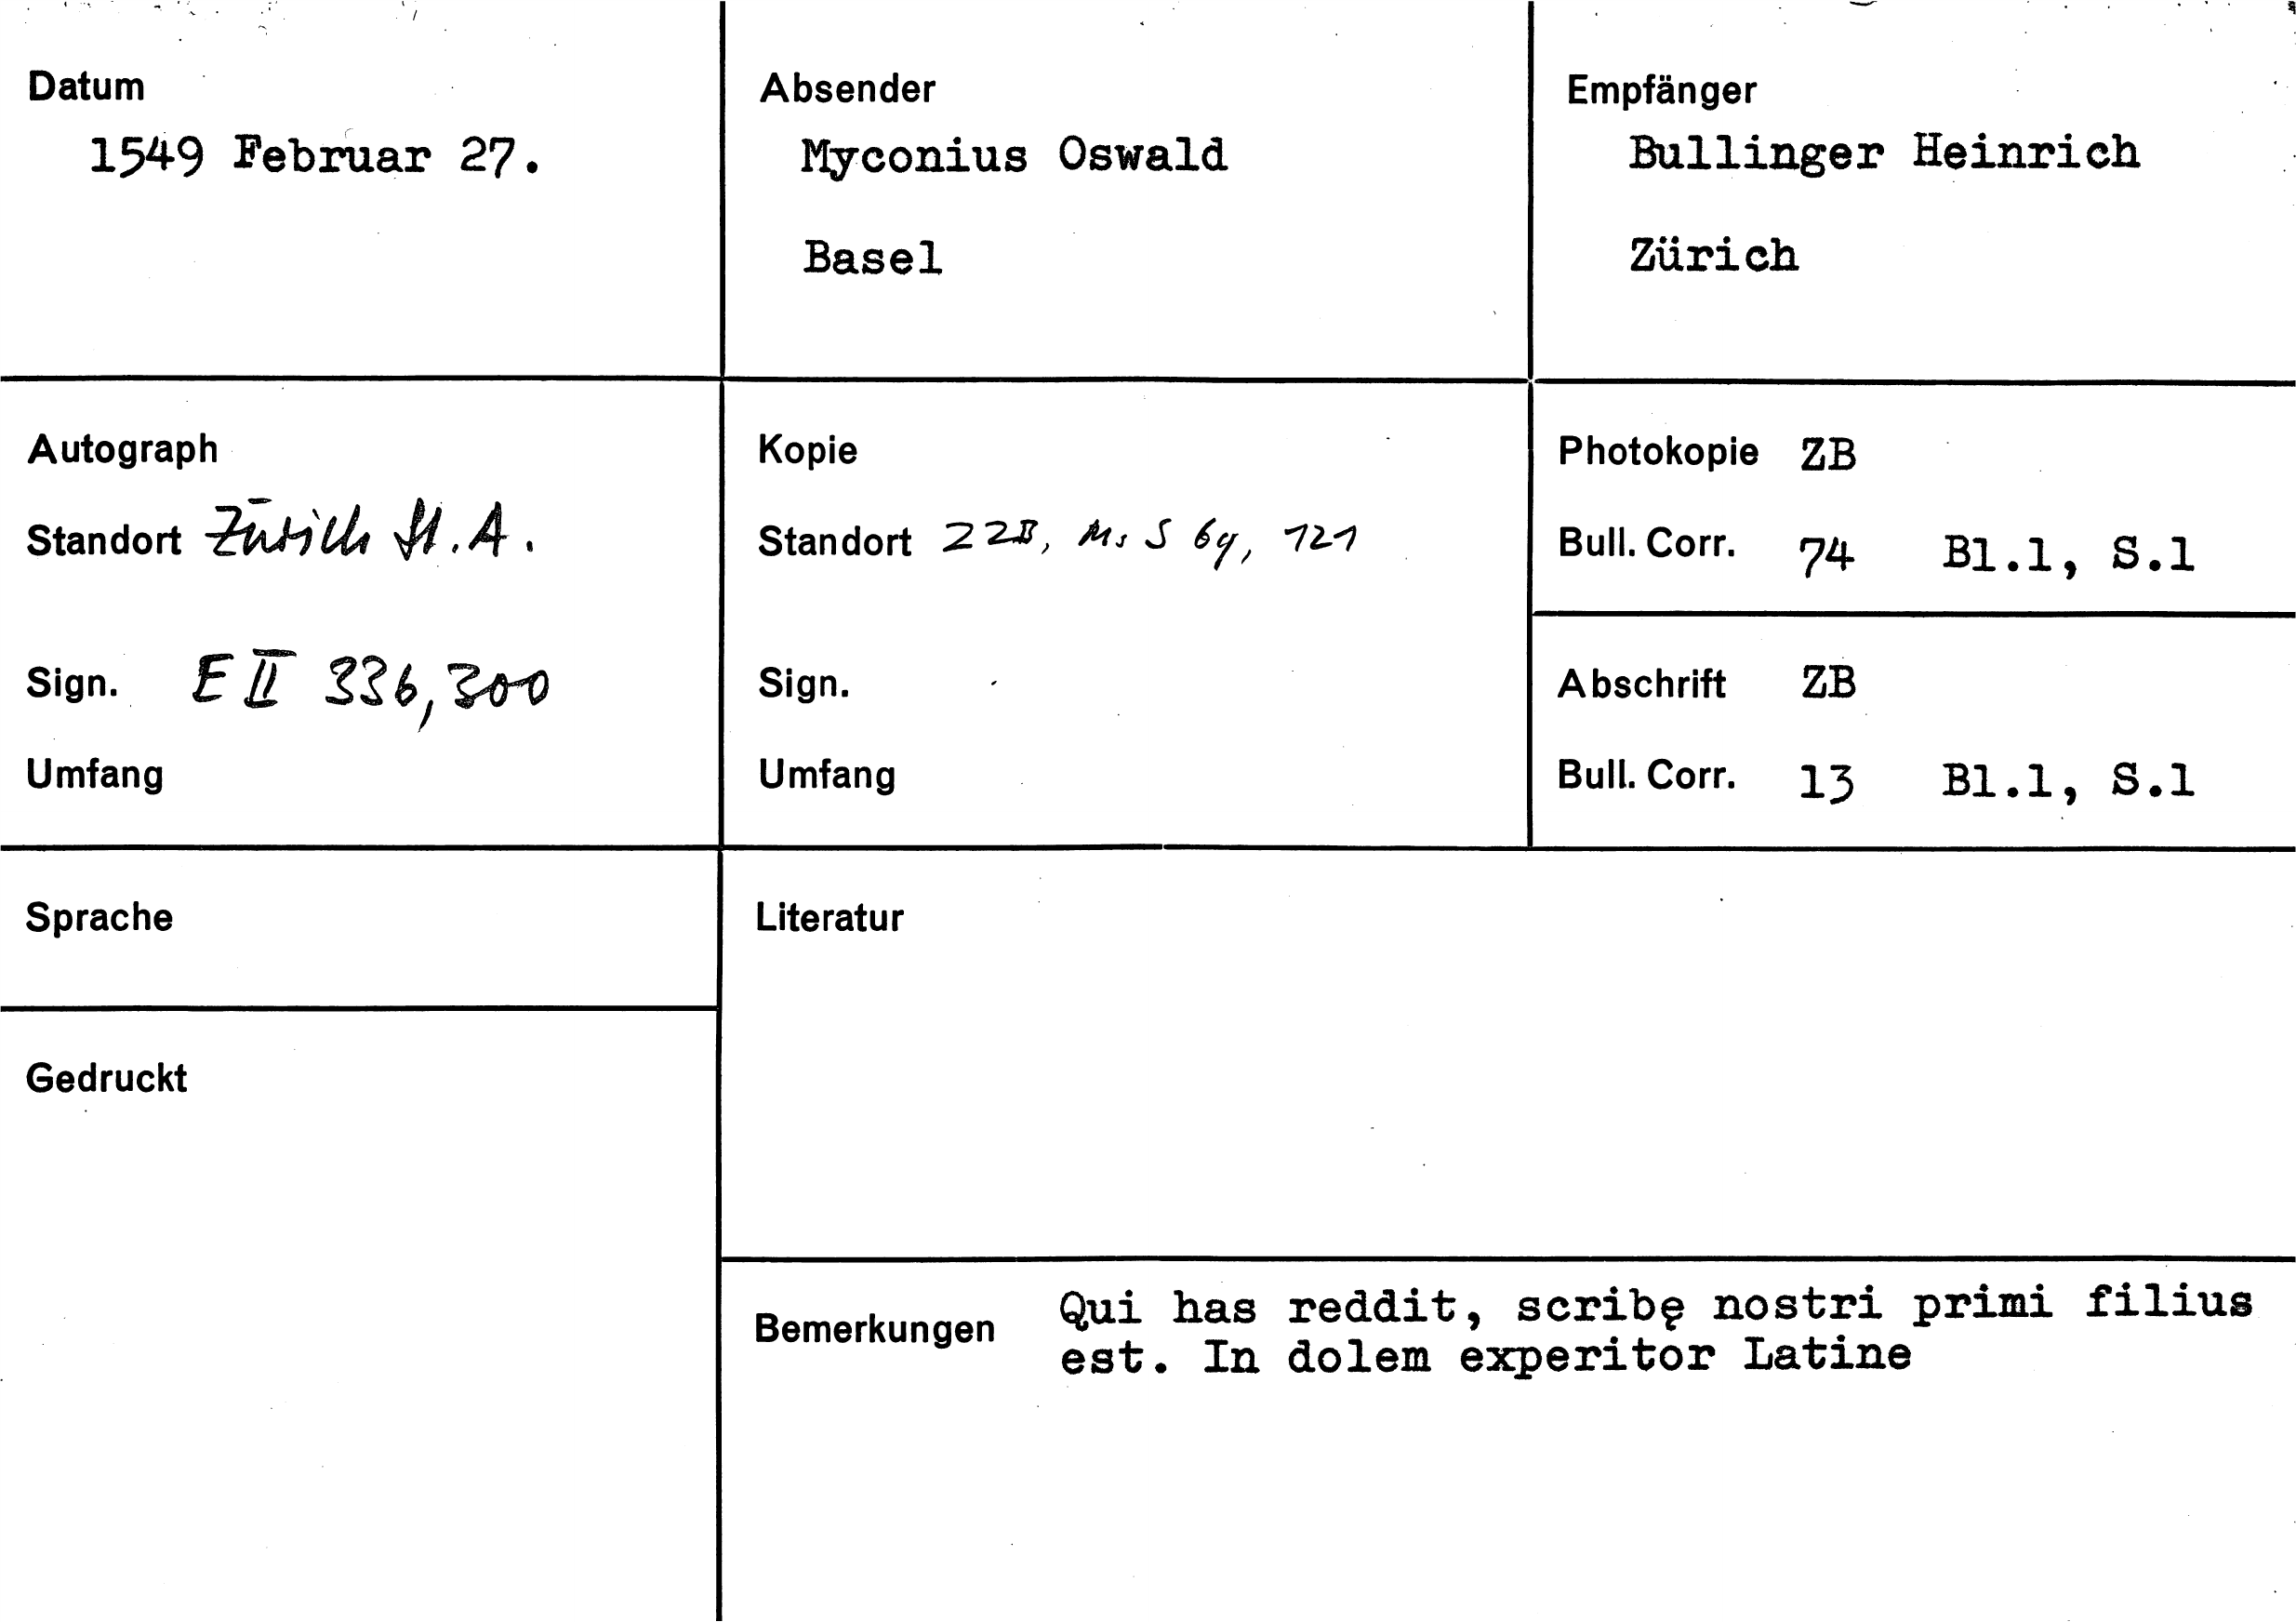 Datum
1549 Februar 27.
Absender
Myconius Oswald
Basel
Empfänger
Bullinger Heinrich
Zürich
Autograph
Standort Zürich St.A.
Sign. E II 336,300
Umfang
Kopie
Standort ZZB, Ms S 69, 121
Sign.
Umfang
Photokopie ZB
Bull. Corr. 74 Bl.1, S.1
Abschrift ZB
Bull. Corr. 13 Bl.1, S.1
Sprache
Gedruckt
Literatur
Bemerkungen
Qui has reddit, scribę nostri primi filius
est. In dolem experitor Latine